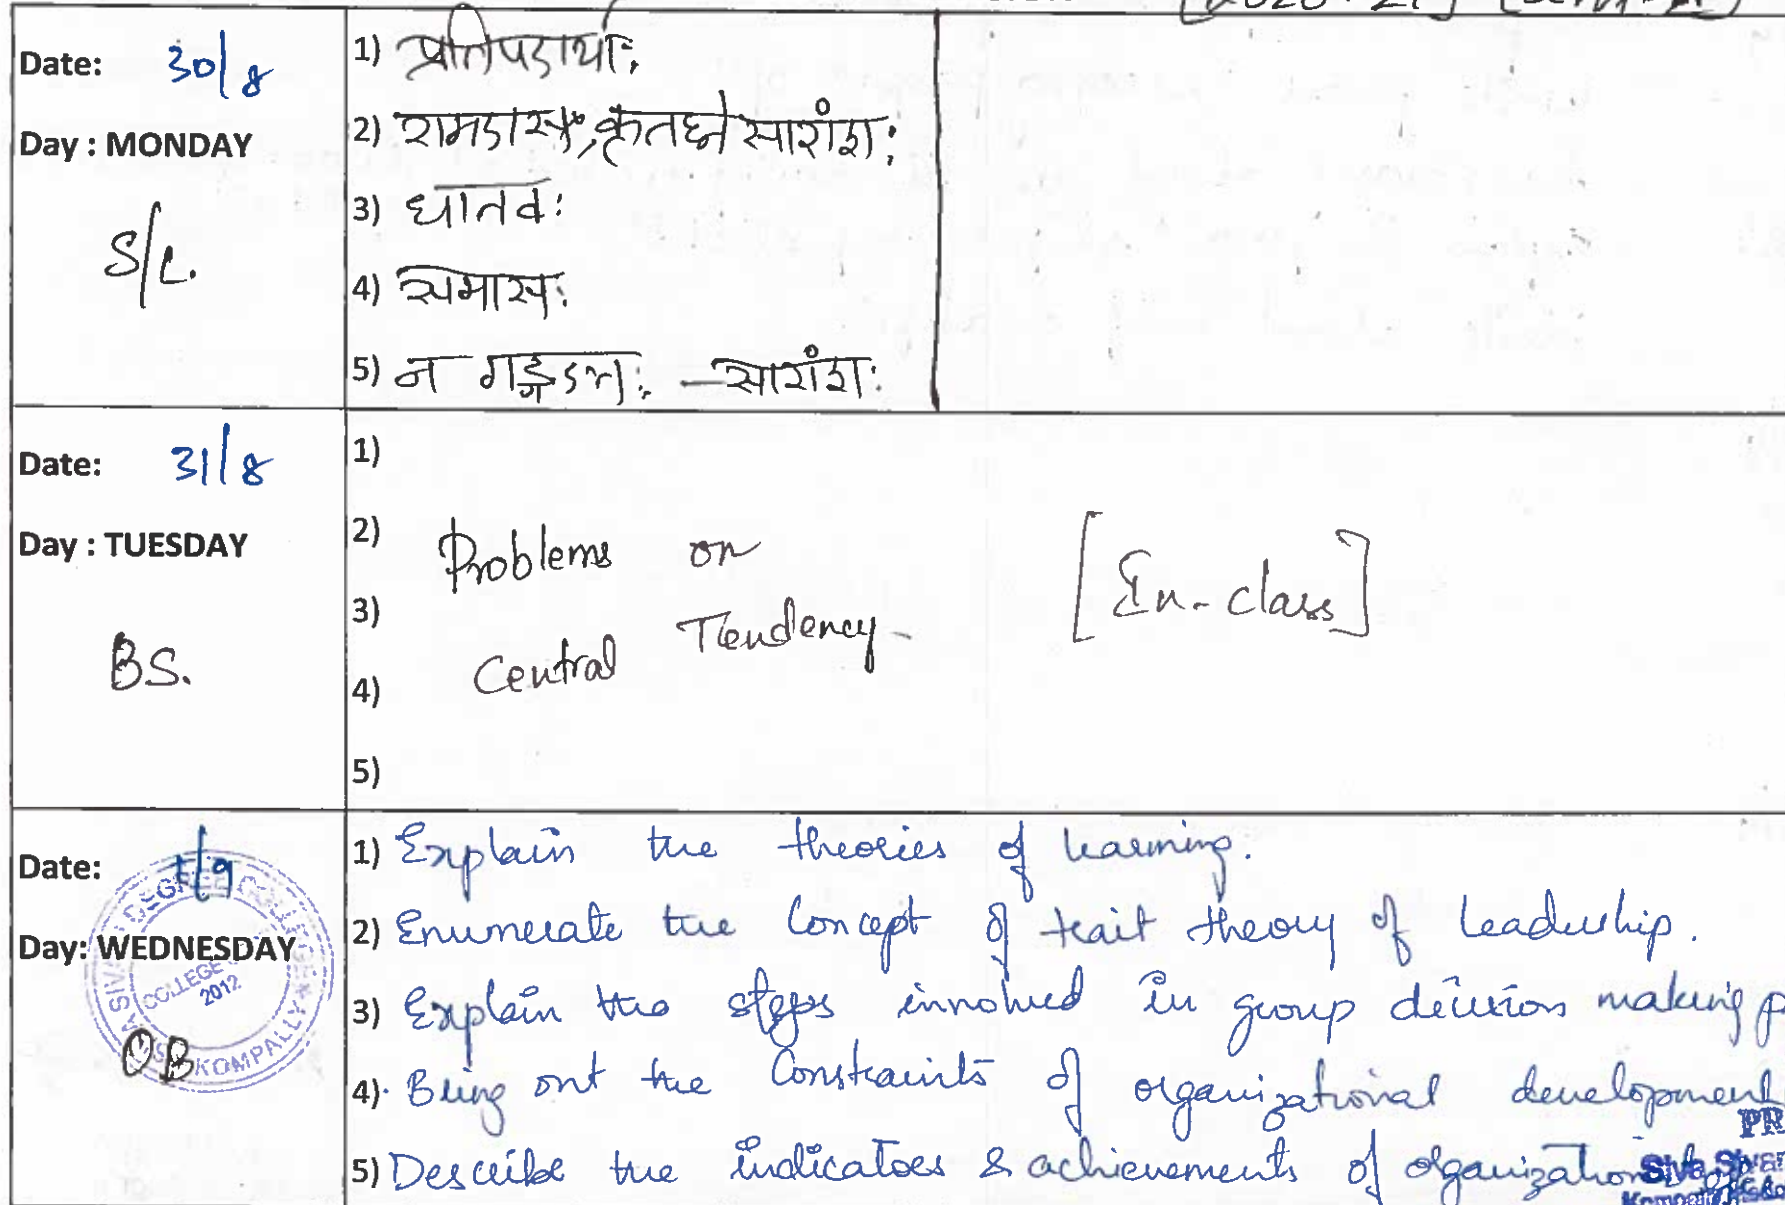 [2020-21]
Date: 30/8
Day : MONDAY
S/L.
1) प्रतिपदार्थाः
2) रामदासः, कृतघ्ने सारांशः
3) धातवः
4) समासः
5) न गङ्गदत्तः - सारांशः
Date: 31/8
Day : TUESDAY
BS.
1)
2) Problems on
3) Central Tendency
4)
5)
[In-class]
Date: 1/9
Day: WEDNESDAY
OB
DEGREE COLLEGE
COLLEGE
2012
KOMPALLY
1) Explain the theories of learning.
2) Enumerate the Concept of trait theory of leadership.
3) Explain the steps involved in group decision making
4). Bring out the Constraints of organizational development
5) Describe the indicators & achievements of organization
PR
Siva Sivan